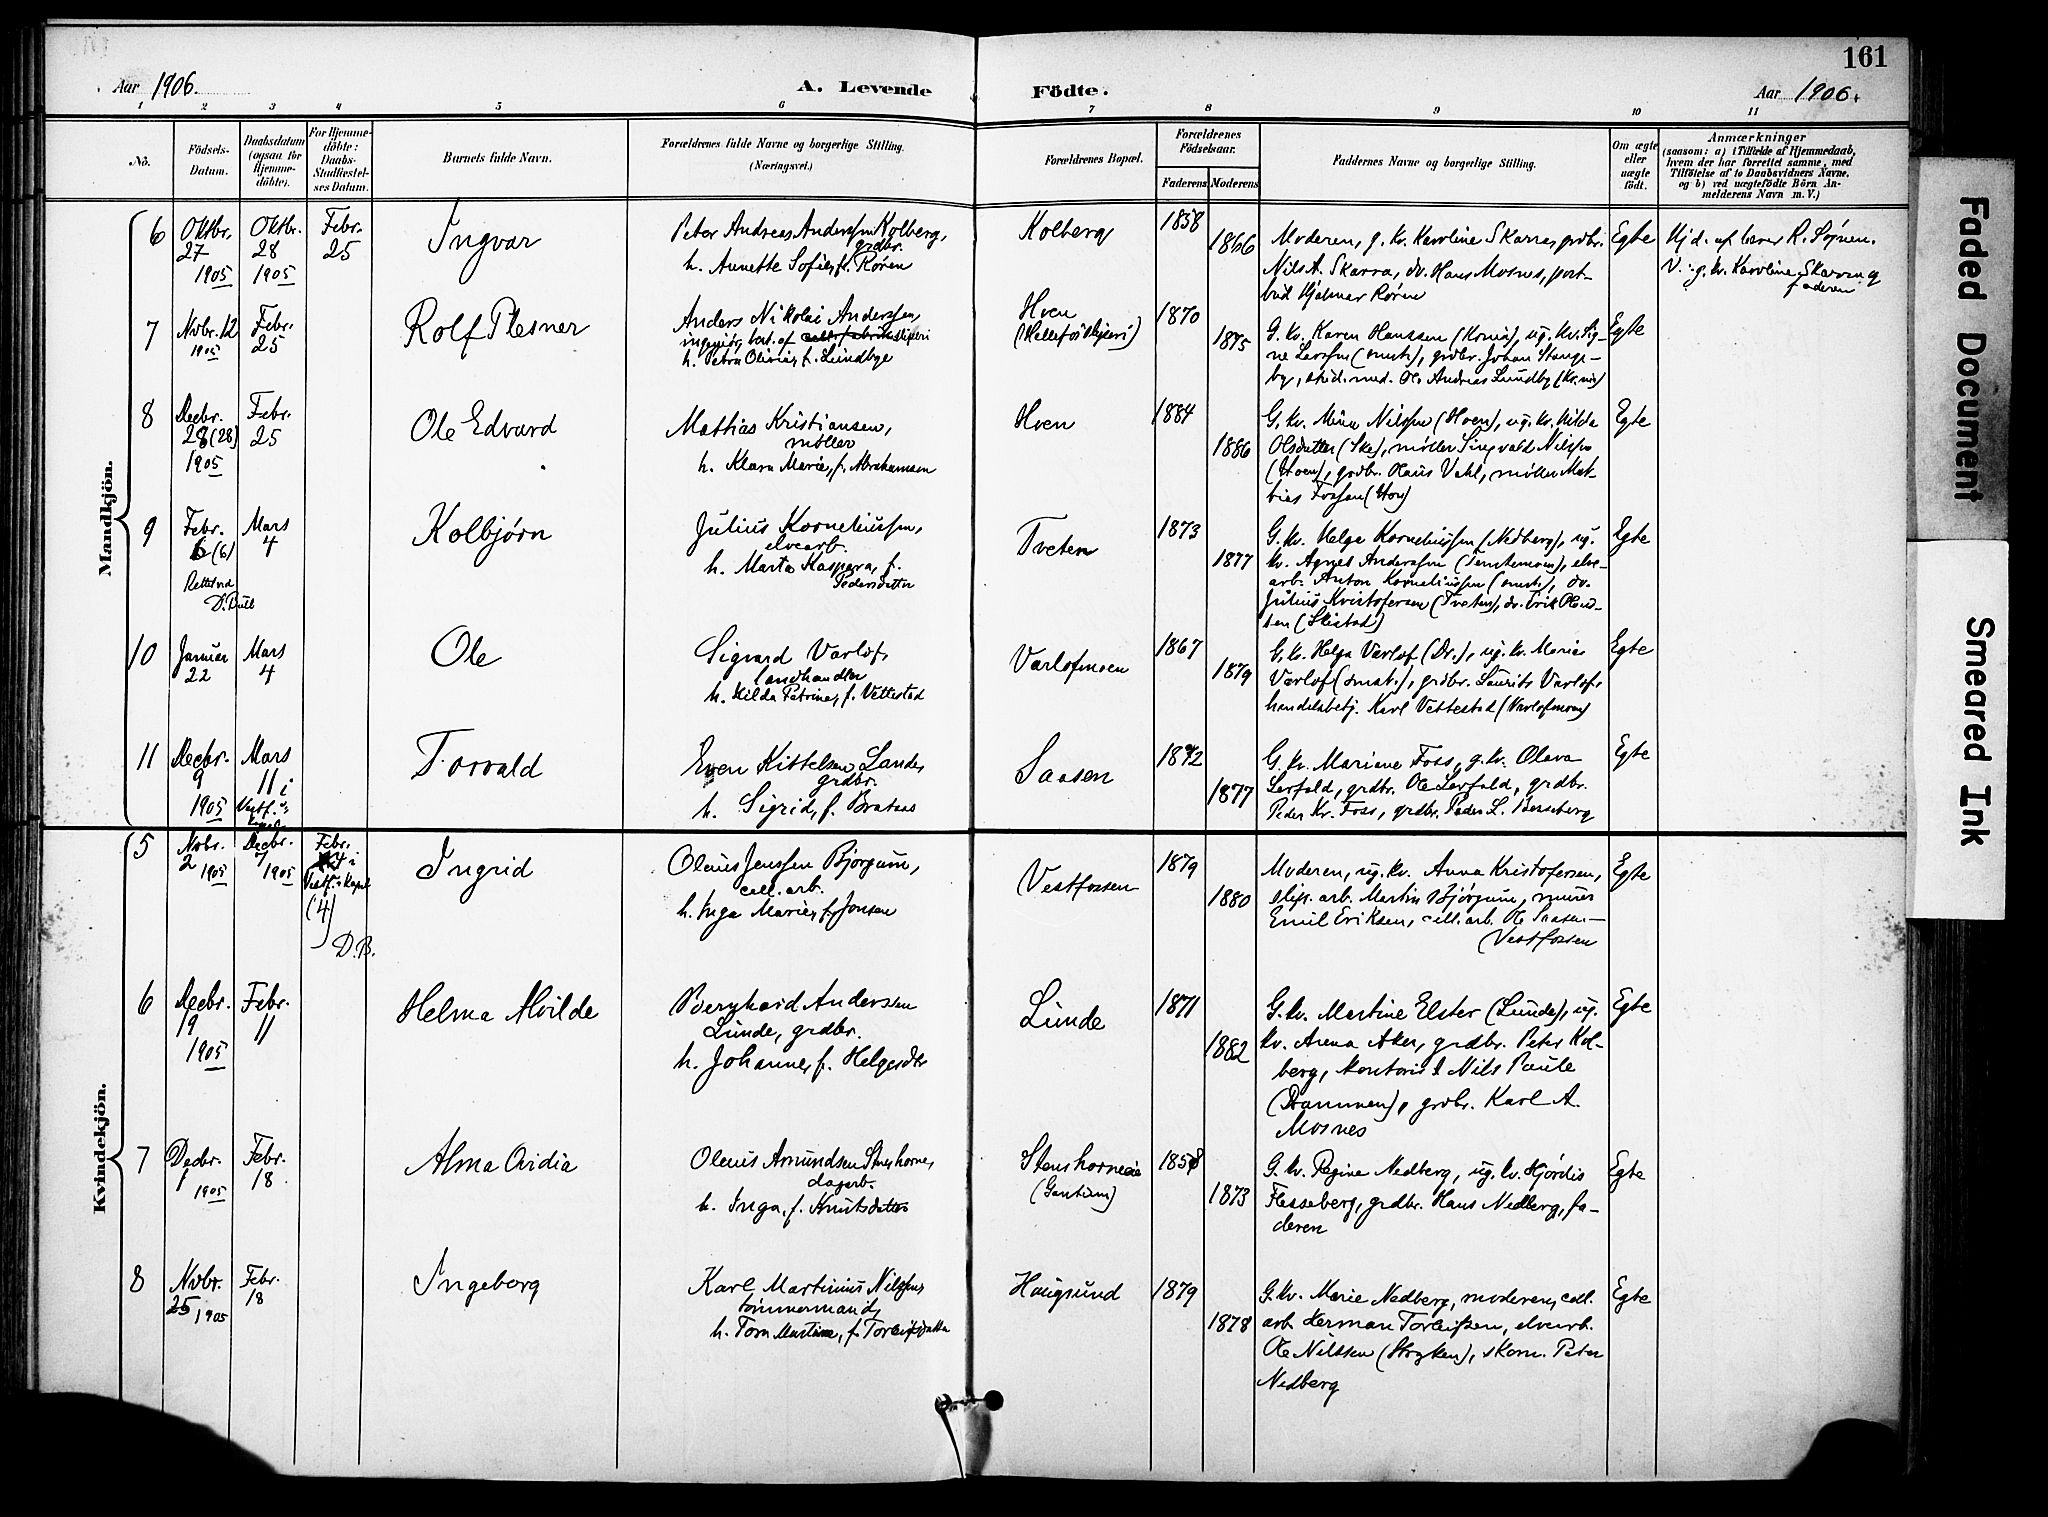 161
Aar 1906.
A. Levende
Födte.
Aar 1906.
1 2 3 4 5 6 7 8 9 10 11
No.
Födsels-
Datum.
Daabsdatum
(ogsaa for
Hjemme-
döbte).
For Hjemme-
döbte:
Daabs-
Stadfæstel-
ses Datum.
Barnets fulde Navn.
Forældrenes fulde Navne og borgerlige Stilling.
(Næringsvei.)
Forældrenes Bopæl.
Forældrenes
Födselsaar.
Faderens Moderens
Faddernes Navne og borgerlige Stilling.
Om ægte
eller
uægte
födt.
Anmærkninger
(saasom: a) i Tilfælde af Hjemmedaab,
hvem der har forrettet samme, med
Tilföielse af to Daabsvidners Navne,
og b) ved uægtefödte Börn An-
melderens Navn m. V.)
Mandkjön.
6
Oktbr.
27
1905
Oktbr.
28
1905
Febr.
25
Ingvar
Peter Andreas Anderssen Kolberg,
grdbr.
h. Annette Sofie, f. Røren
Kolberg
1858
1866
Moderen, g. kv. Karoline Skarra, grdbr.
Nils A. Skarra, dv. Hans Mosnes, post-
bud Hjalmar Røren
Egte
Hjd. af lærer R. Søgnen.
V.: g. kv. Karoline Skarra og
faderen
7
Novbr. 12
1905
Febr.
25
Rolf Plesner
Anders Nikolai Anderssen,
ingeniør, best. af
h. Petra Olivia, f. Lundbye
Hoen
1870
1875
G. kv. Karen Hanssen (Kr.nia), ug. kv. Sig-
ne Larssen (smst.), grdbr. Johan Stange-
by, stud. med. Ole Andreas Lundby (Kr.nia)
Egte
8
Decbr.
28 (28)
1905
Febr.
25
Ole Edvard
Mathias Kristiansen,
møller
h. Klara Marie, f. Abrahamsen
Hoen
1884
1886
G. kv. Mina Nilssen (Hoen), ug. kv. Hilda
Olsdatter (Ske), møller Singvald Nilssen
(Hoen), grdbr. Hans Vahl, møller Mat-
hias Fossen (Hoen)
Egte
9
Febr.
6 (6)
Rettet ved
D. Bull
Mars
4
Kolbjørn
Julius Korneliussen,
elvearb.
h. Marta Kaspara, f.
Pedersdatter
Tveten
1873
1877
G. kv. Helga Korneliussen (Nedberg), ug.
kv. Agnes Anderssen (Temtemoen), elve-
arb. Anton Korneliussen (smst.), dv.
Julius Kristofersen (Tveten), dv. Erik Ol
sen (Skistad)
Egte
10
Januar
22
Mars
4
Ole
Sigvard Varlof,
landhandler
h. Hilda Petrine, f. Vettestad
Varlofmoen
1867
1879
G. kv. Helga Varlof (Dr.), ug. kv. Marie
Varlof (smst.), grdbr. Laurits Varlof,
handelsbetj. Karl Vettestad (Varlofmoen)
Egte
11
Decbr.
9
1905
Mars
11 i
Vestf.
Torvald
Even Kittelsen Lande,
grdbr.
h. Sigrid, f. Brataas
Saasen
1872
1877
G. kv. Mariane Foss, g. kv. Olava
Lerfald, grdbr. Ole Lerfald, grdbr.
Peder Kr. Foss, grdbr. Peder L. Besseberg
Egte
Kvindekjön.
5
Novbr.
2
1905
Decbr.
7
1905
Febr.
4 i
Vestf. Kapel
(4)
D. B.
Ingrid
Olaus Jenssen Bjørgum,
cell. arb.
h. Inga Marie, f. Jonsen
Vestfossen
1879
1880
Moderen, ug. kv. Anna Kristofersen,
slip. arb. Martin Bjørgum, murer
Emil Eriksen, cell. arb. Ole Saasen —
(Vestfossen
Egte
6
Decbr.
19
1905
Febr.
11
Helma Alvilde
Bernhard Anderssen
Lunde, grdbr.
h. Johanne, f. Helgesdtr
Lunde
1871
1882
G. kv. Martine Elster (Lunde), ug.
kv. Anna Aker, grdbr. Peter Kol-
berg, kontorist Nils Paule
(Drammen), grdbr. Karl A.
Mosnes
Egte
7
Decbr.
1
1905
Febr.
18
Alma Ovidia
Olaus Amundsen Stenshorne,
dagarb.
h. Inga, f. Knutsdatter
Stenshorneeie
1858
1873
G. kv. Regine Nedberg, ug. kv. Hjørdis
Flesseberg, grdbr. Hans Nedberg, fa-
deren
Egte
8
Novbr.
25
1905
Febr.
18
Ingeborg
Karl Martinius Nilssen,
tømmermand,
h. Tora Martine, f. Torleifsdatter
Haugsund
1879
1878
G. kv. Marie Nedberg, moderen, cell.
arb. Herman Torleifsen, elvearb.
Ole Nilssen (Stryken), skom. Peter
Nedberg
Egte
Faded Document
Smeared Ink